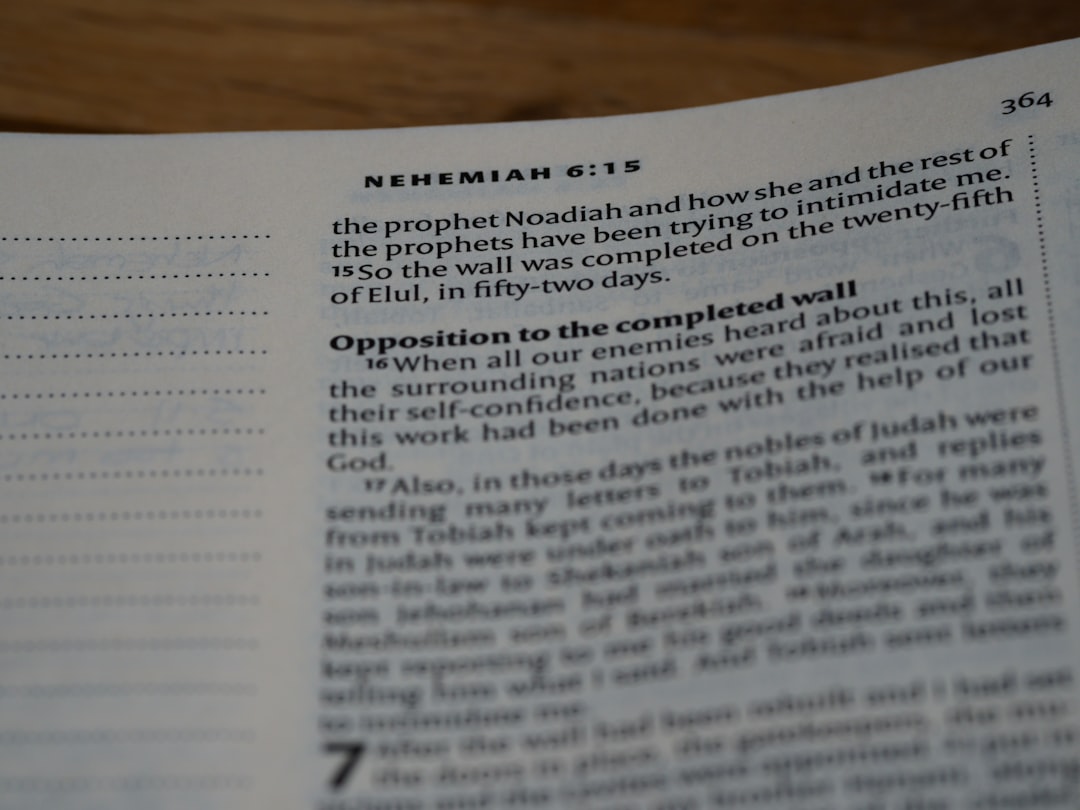 364
NEHEMIAH 6:15
the prophet Noadiah and how she and the rest of
the prophets have been trying to intimidate me.
15 So the wall was completed on the twenty-fifth
of Elul, in fifty-two days.
Opposition to the completed wall
16 When all our enemies heard about this, all
the surrounding nations were afraid and lost
their self-confidence, because they realised that
this work had been done with the help of our
God.
17 Also, in those days the nobles of Judah were
sending many letters to Tobiah, and replies
from Tobiah kept coming to them. 18 For many
in Judah were under oath to him, since he was
son-in-law to Shekaniah son of Arah, and his
son Jehohanan had married the daughter of
Meshullam son of Berekiah. 19 Moreover, they
kept reporting to me his good deeds and then
telling him what I said. And Tobiah sent letters
to intimidate me.
7 After the wall had been rebuilt and I had set
the doors in place, the gatekeepers, the